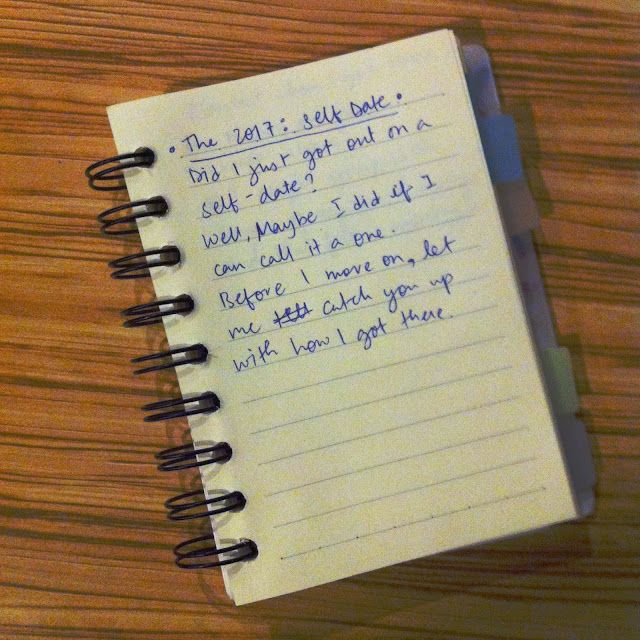 • The 2017: Self Date •
Did I just got out on a
self-date?
Well, Maybe I did if I
can call it a one.
Before I move on, let
me catch you up
with how I got there.